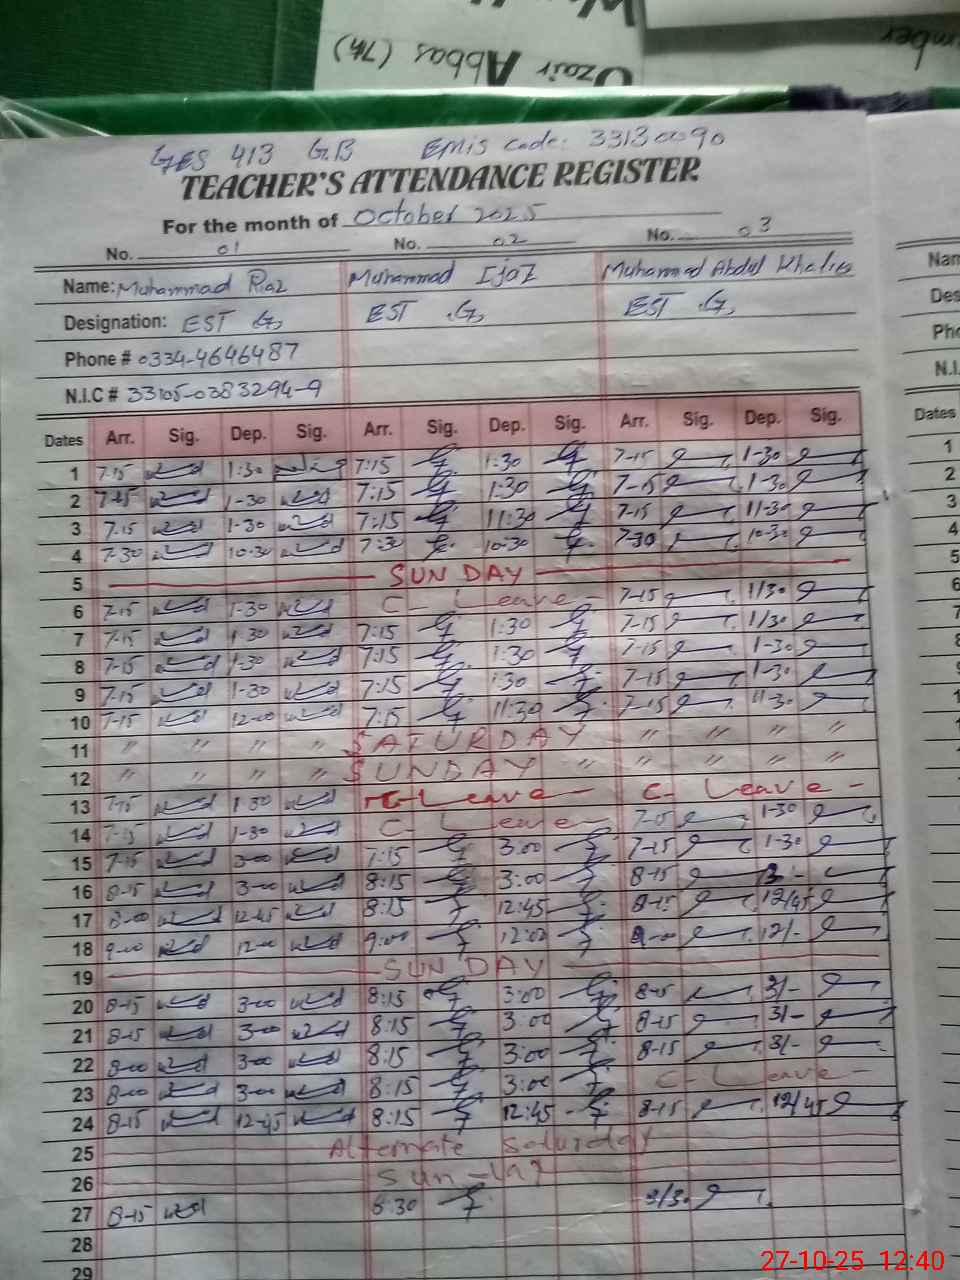 Uzair Abbas (7th)
GES 413 GB Emis code: 33130090
TEACHER'S ATTENDANCE REGISTER
For the month of October 2025
No. 01 No. 02 No. 03
Name: Muhammad Riaz Muhammad Ijaz Muhammad Abdul Khaliq
Designation: EST G, EST .G, EST G,
Phone # 0334-4646487
N.I.C # 33105-0383294-9
Dates Arr. Sig. Dep. Sig. Arr. Sig. Dep. Sig. Arr. Sig. Dep. Sig. Dates
1 7:15 1:30 7:15 1:30 7-15 1-30
2 7-15 1-30 7:15 1:30 7-15 1-30
3 7.15 1-30 7:15 11:30 7-15 11-30
4 7-30 10-30 7:30 10-30 7-30 10-30
5 SUNDAY
6 7-15 1-30 C- Leave - 7-15 1/30
7 7-15 1-30 7:15 1:30 7-15 1/30
8 7-15 1-30 7:15 1:30 7-15 1-30
9 7-15 1-30 7:15 1:30 7-15 1-30
10 7-15 12-00 7:15 11:30 7-15 11-30
11 " " " " SATURDAY " " " "
12 " " " " SUNDAY " " " " "
13 7-15 1-30 C- Leave - C- Leave -
14 7-15 1-30 C- Leave - 1-30
15 7-15 3-00 7:15 3:00 7-15 1-30
16 8-15 3-00 8:15 3:00 8-15 3 -
17 8-00 12-45 8:15 12:45 8-15 12/45
18 9-00 12-00 9:00 12:00 9-00 12/-
19 SUNDAY
20 8-15 3-00 8:15 3:00 8-15 3/-
21 8-15 3-00 8:15 3:00 8-15 3/-
22 8-00 3-00 8:15 3:00 8-15 3/-
23 8-00 3-00 8:15 3:00 C- Leave -
24 8-15 12-45 8:15 12:45 8-15 12/45
25 Alternate Saturday
26 Sun-day
27 8-15 8:30
28
29
27-10-25 12:40